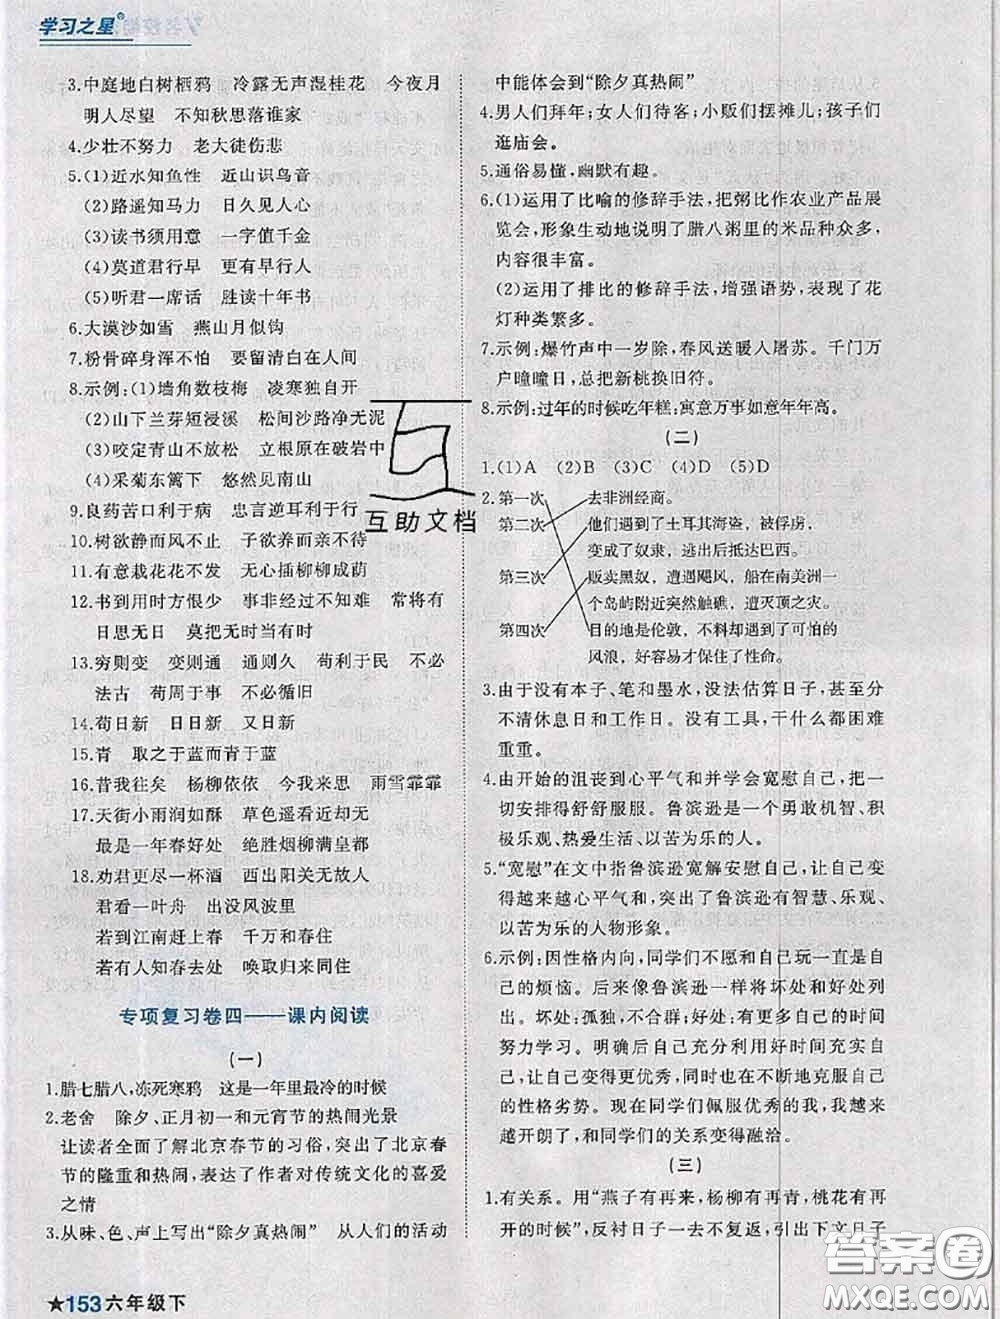 学习之星®
3.中庭地白树栖鸦 冷露无声湿桂花 今夜月
明人尽望 不知秋思落谁家
4.少壮不努力 老大徒伤悲
5.(1)近水知鱼性 近山识鸟音
(2)路遥知马力 日久见人心
(3)读书须用意 一字值千金
(4)莫道君行早 更有早行人
(5)听君一席话 胜读十年书
6.大漠沙如雪 燕山月似钩
7.粉骨碎身浑不怕 要留清白在人间
8.示例:(1)墙角数枝梅 凌寒独自开
(2)山下兰芽短浸溪 松间沙路净无泥
(3)咬定青山不放松 立根原在破岩中
(4)采菊东篱下 悠然见南山
9.良药苦口利于病 忠言逆耳利于行
10.树欲静而风不止 子欲养而亲不待
11.有意栽花花不发 无心插柳柳成荫
12.书到用时方恨少 事非经过不知难 常将有
日思无日 莫把无时当有时
13.穷则变 变则通 通则久 苟利于民 不必
法古 苟周于事 不必循旧
14.苟日新 日日新 又日新
15.青 取之于蓝而青于蓝
16.昔我往矣 杨柳依依 今我来思 雨雪霏霏
17.天街小雨润如酥 草色遥看近却无
最是一年春好处 绝胜烟柳满皇都
18.劝君更尽一杯酒 西出阳关无故人
君看一叶舟 出没风波里
若到江南赶上春 千万和春住
若有人知春去处 唤取归来同住
专项复习卷四——课内阅读
(一)
1.腊七腊八,冻死寒鸦 这是一年里最冷的时候
2.老舍 除夕、正月初一和元宵节的热闹光景
让读者全面了解北京春节的习俗,突出了北京春
节的隆重和热闹,表达了作者对传统文化的喜爱
之情
3.从味、色、声上写出“除夕真热闹” 从人们的活动
中能体会到“除夕真热闹”
4.男人们拜年;女人们待客;小贩们摆摊儿;孩子们
逛庙会。
5.通俗易懂,幽默有趣。
6.(1)运用了比喻的修辞手法,把粥比作农业产品展
览会,形象生动地说明了腊八粥里的米品种众多,
内容很丰富。
(2)运用了排比的修辞手法,增强语势,表现了花
灯种类繁多。
7.示例:爆竹声中一岁除,春风送暖入屠苏。千门万
户曈曈日,总把新桃换旧符。
8.示例:过年的时候吃年糕;寓意万事如意年年高。
(二)
1.(1)A (2)B (3)C (4)D (5)D
2.第一次 去非洲经商。
第二次 他们遇到了土耳其海盗,被俘虏,
变成了奴隶,逃出后抵达巴西。
第三次 贩卖黑奴,遭遇飓风,船在南美洲一
个岛屿附近突然触礁,遭灭顶之灾。
第四次 目的地是伦敦,不料却遇到了可怕的
风浪,好容易才保住了性命。
3.由于没有本子、笔和墨水,没法估算日子,甚至分
不清休息日和工作日。没有工具,干什么都困难
重重。
4.由开始的沮丧到心平气和并学会宽慰自己,把一
切安排得舒舒服服。鲁滨逊是一个勇敢机智、积
极乐观、热爱生活、以苦为乐的人。
5.“宽慰”在文中指鲁滨逊宽解安慰自己,让自己变
得越来越心平气和,突出了鲁滨逊有智慧、乐观、
以苦为乐的人物形象。
6.示例:因性格内向,同学们不愿和自己玩一直是自
己的烦恼。后来像鲁滨逊一样把好处和坏处列
出来。坏处:孤独,不合群;好处:有更多自己的时间
努力学习。明确后自己充分利用好时间充实自
己,让自己变得更优秀,同时也在不断地克服自己
的性格劣势。现在同学们佩服优秀的我,我越来
越开朗了,和同学们的关系变得融洽。
(三)
1.有关系。用“燕子有再来,杨柳有再青,桃花有再
开的时候”,反衬日子一去不复返,引出下文日子
互助文档
★153六年级下
答案圈
MXQE.COM